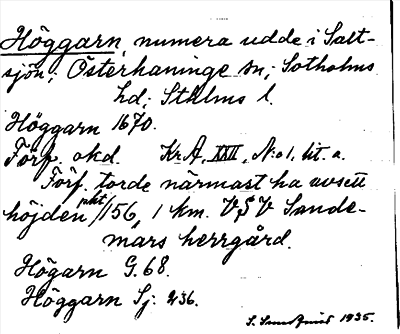 Höggarn, numera udde i Salt-
sjön, Österhaninge sn, Sotholms
hd, Sthlms l.
Höggarn 1670.
Förf. okd. Kr A, XXII, N:o 1, lit. a.
Förf. torde närmast ha avsett
höjden pkt 156, 1 km. VSV Sande-
mars herrgård.
Högarn G. 68.
Höggarn Sj: 236.
S. 1935.